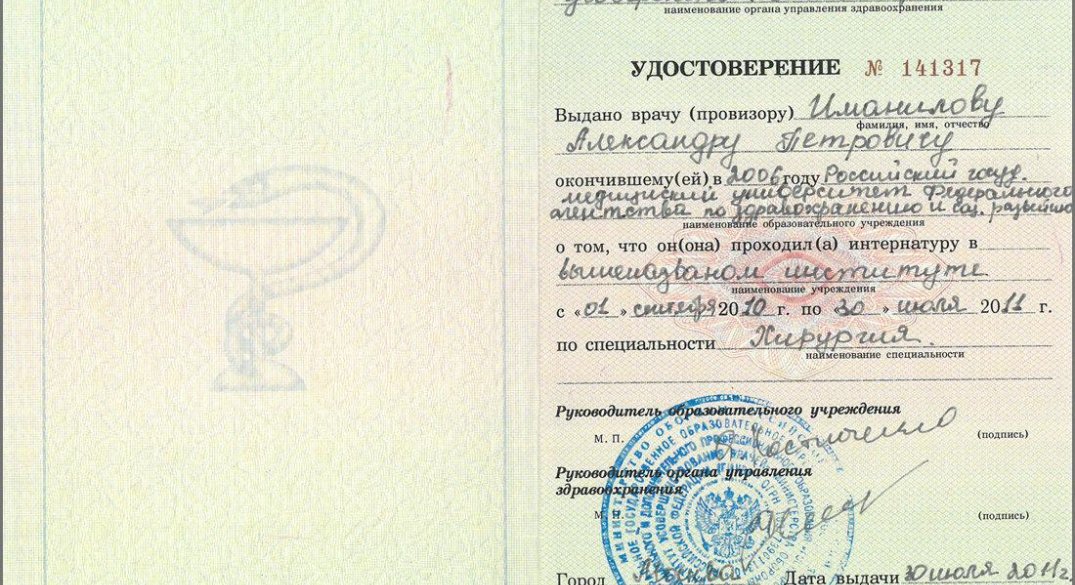 наименование органа управления здравоохранения
УДОСТОВЕРЕНИЕ № 141317
Выдано врачу (провизору) Иманилову
фамилия, имя, отчество
Александру Петровичу
окончившему(ей) в 2006 году Российский госуд.
медицинский университет Федерального
агентства по здравоохранению и соц. развитию
наименование образовательного учреждения
о том, что он(она) проходил(а) интернатуру в
вышеназваном институте
наименование учреждения
с «01» сентября 2010 г. по «30» июля 2011 г.
по специальности Хирургия.
наименование специальности
Руководитель образовательного учреждения
М. П.
(подпись)
Руководитель органа управления
здравоохранения
М. П.
(подпись)
Город Москва Дата выдачи 30 июля 2011г